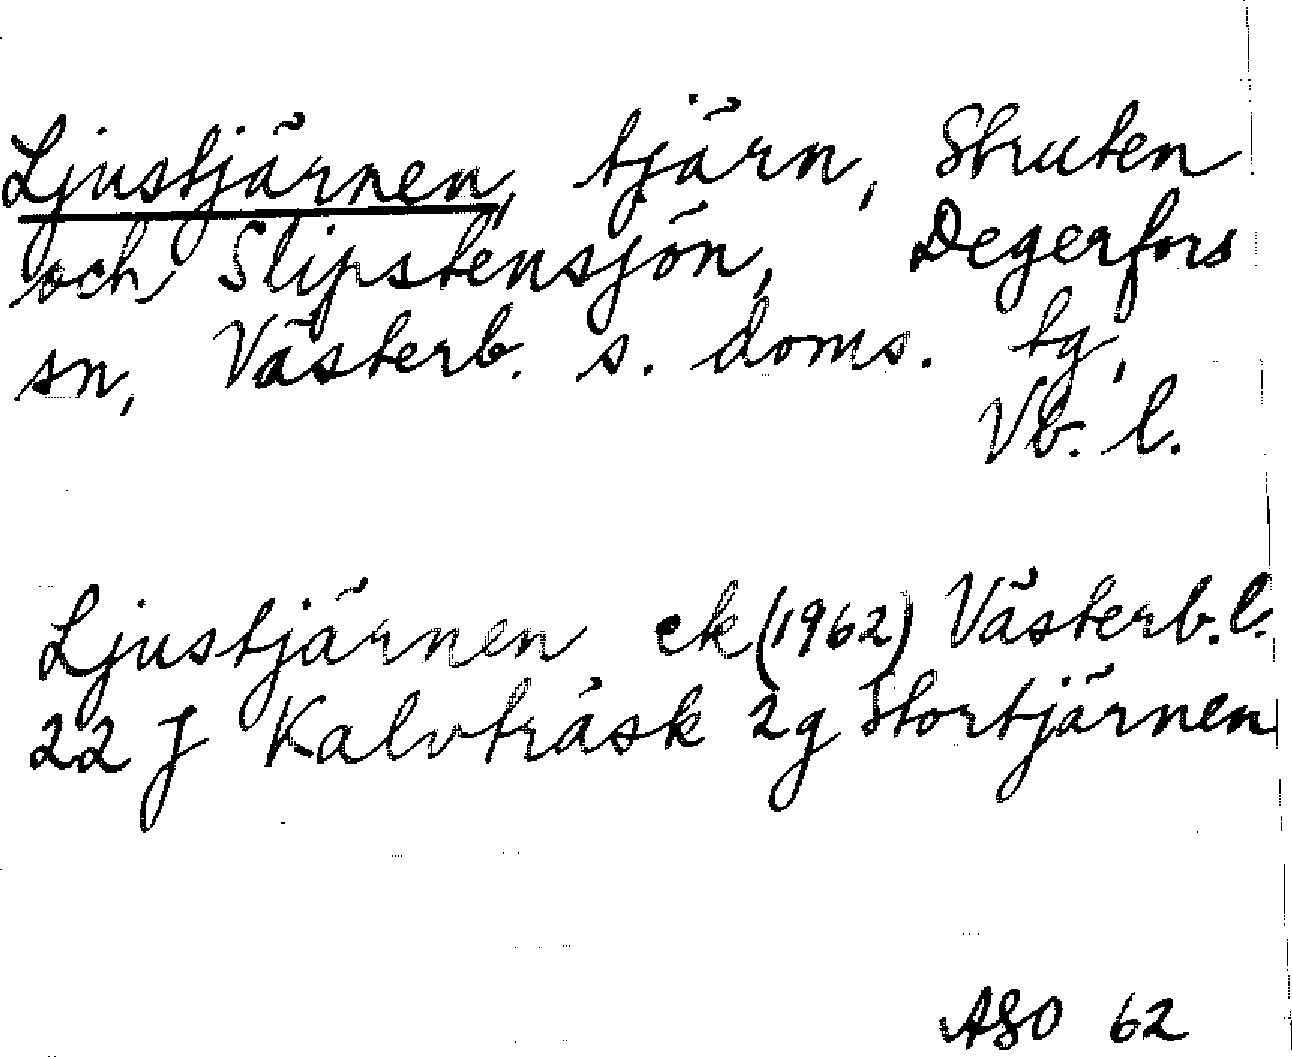 Ljustjärnen, tjärn, Struten
och Slipstensjön, Degerfors
sn, Västerb. s. doms. tg,
Vb. l.
Ljustjärnen ek (1962) Västerb. l.
22 J Kalvträsk 2g Stortjärnen
ASO 62